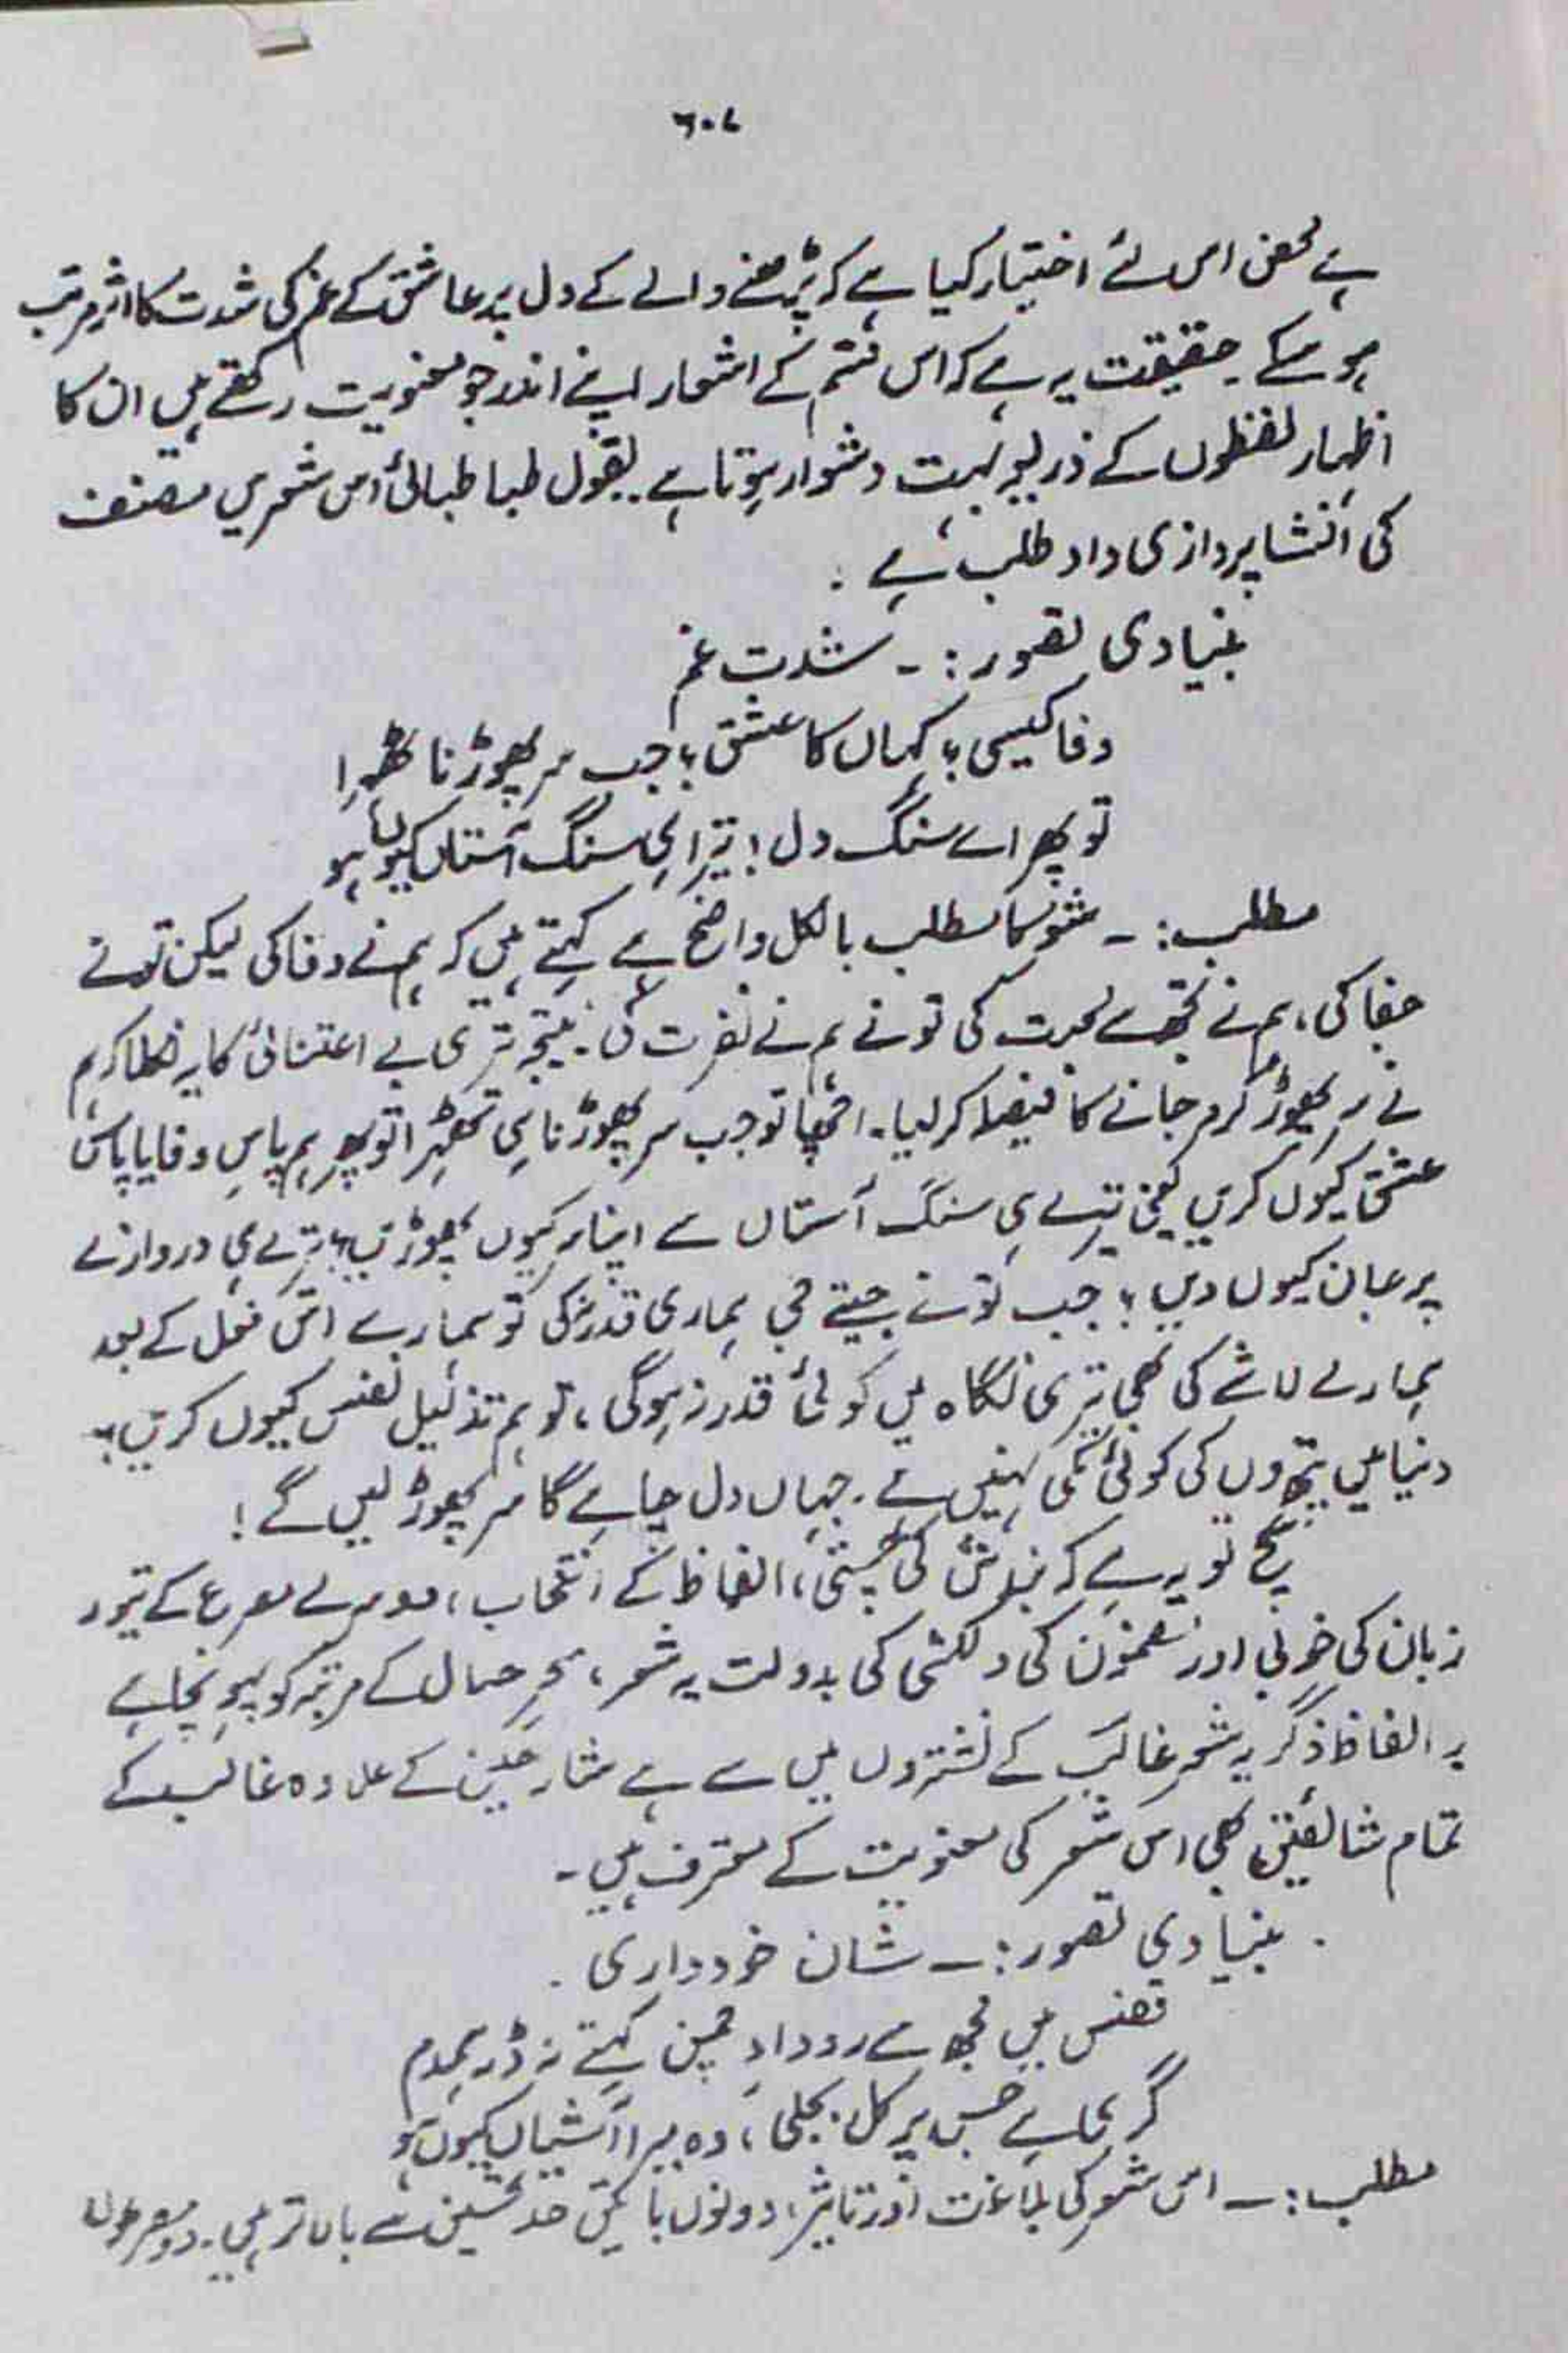 ۶۰۷
ہے محض اس لئے اختیار کیا ہے کہ پڑھنے والے کے دل پر عاشق کے غم کی شدت کا اثر مرتب
ہو سکے ۔ حقیقت یہ ہے کہ اس قسم کے اشعار اپنے اندر جو معنویت رکھتے ہیں ان کا
اظہار لفظوں کے ذریعہ بہت دشوار ہوتا ہے ۔ بقول طبا طبائی اس شعر میں مصنف
کی انشا پردازی داد طلب ہے ۔
بنیادی تصور :۔ شدت غم
وفا کیسی ؟ کہاں کا عشق ؟ جب سر پھوڑنا ٹھہرا
تو پھر اے سنگ دل ! تیرا ہی سنگ آستاں کیوں ہو
مطلب :۔ شعر کا مطلب بالکل واضح ہے کہتے ہیں کہ ہم نے وفا کی لیکن تونے
جفا کی ، ہم نے تجھ سے محبت کی تونے ہم نے نفرت کی ۔ نتیجہ تیری بے اعتنائی کا یہ نکلا کہ ہم
نے سر پھوڑ کر مر جانے کا فیصلا کر لیا ۔ اچھا تو جب سر پھوڑنا ہی ٹھہرا تو پھر ہم پاسِ وفا یا پاس
عشق کیوں کریں یعنی تیرے ہی سنگ آستاں سے اپنا سر کیوں پھوڑیں ؟ ترے ہی دروازے
پر جان کیوں دیں ؟ جب تونے جیتے جی ہماری قدر نہ کی تو ہمارے اس فعل کے بعد
ہمارے لاشے کی بھی تیری نگاہ میں کوئی قدر نہ ہوگی ، تو ہم تذلیل نفس کیوں کریں ؟
دنیا میں پتھروں کی کوئی کمی نہیں ہے ۔ جہاں دل چاہے گا سر پھوڑ لیں گے !
سچ تو یہ ہے کہ بندش کی چستی ، الفاظ کے انتخاب ، دوسرے مصرع کے تیور
زبان کی خوبی اور مضمون کی دلکشی کی بدولت یہ شعر ، سحرِ حلال کے مرتبہ کو پہونچا ہے
بہ الفاظ دگر یہ شعر غالب کے نشتروں میں سے ہے شارحین کے علاوہ غالب کے
تمام شائقین بھی اس شعر کی معنویت کے معترف ہیں ۔
بنیادی تصور :۔ شان خودداری ۔
قفس میں مجھ سے رودادِ چمن کہتے نہ ڈر ہمدم
گری ہے جس پر کل بجلی ، وہ میرا آشیاں کیوں ہو
مطلب :۔ اس شعر کی بلاغت اور تاثیر ، دونوں باتیں حد تحسین سے بالاتر ہیں ۔ دو مصرعوں